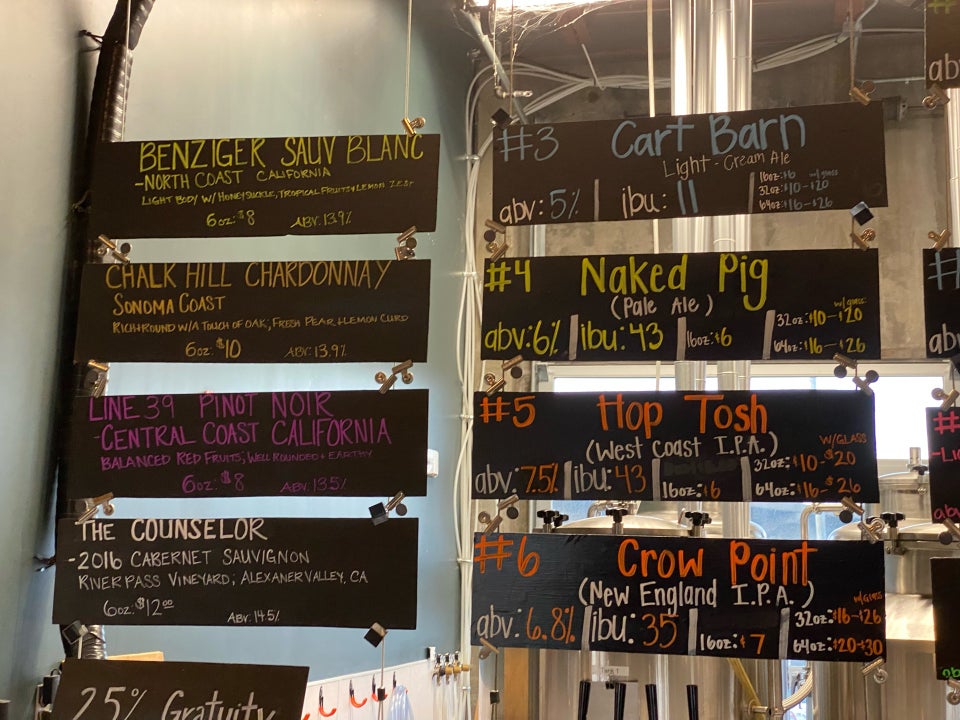 BENZIGER SAUV BLANC
-NORTH COAST CALIFORNIA
LIGHT BODY W/ HONEYSUCKLE, TROPICAL FRUITS & LEMON ZEST
6oz: $8 ABV: 13.9%
CHALK HILL CHARDONNAY
SONOMA COAST
RICH & ROUND W/A TOUCH OF OAK, FRESH PEAR, & LEMON CURD
6oz: $10 ABV: 13.9%
LINE 39 PINOT NOIR
-CENTRAL COAST CALIFORNIA
BALANCED RED FRUITS, WELL ROUNDED & EARTHY
6oz: $8 ABV: 13.5%
THE COUNSELOR
-2016 CABERNET SAUVIGNON
RIVER PASS VINEYARD; ALEXANER VALLEY, CA
6oz: $12.00 ABV: 14.5%
25% Gratuity
#3 Cart Barn
Light - Cream Ale
abv: 5% | ibu: 11
16oz: $6 w/ glass
32oz: $10-$20
64oz: $16-$26
#4 Naked Pig
(Pale Ale)
abv: 6% | ibu: 43 | 16oz: $6
w/ glass
32oz: $10-$20
64oz: $16-$26
#5 Hop Tosh
(West Coast I.P.A.)
abv: 7.5% | ibu: 43 | 16oz: $6
W/GLASS
32oz: $10-$20
64oz: $16-$26
#6 Crow Point
(New England I.P.A.)
abv: 6.8% | ibu: 35 | 16oz: $7
w/GLASS
32oz: $16-$26
64oz: $20-$30
ab
#
ab
#
-Li
ab